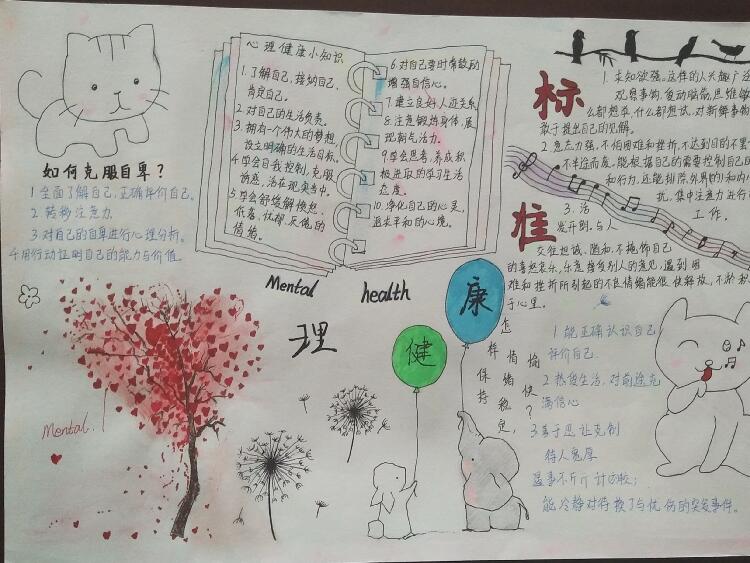 心理健康小知识
1.了解自己,接纳自己,
肯定自己。
2.对自己的生活负责。
3.拥有一个伟大的梦想,
设立明确的生活目标。
4.学会自我控制,克服
诱惑,活在现实当中。
5.学会舒缓解愤怒、
低落、忧郁、灰傀的
情绪。
6.对自己要时常鼓励
增强自信心。
7.建立良好人迹关系
8.注意锻炼身体,展
现朝气活力。
9.学会思考,养成积
极进取的学习生活
态度。
10.净化自己的心灵,
追求平和的心境。
如何克服自卑?
1.全面了解自己,正确评价自己。
2.转移注意力
3.对自己的自卑进行心理分析。
4.用行动证明自己的能力与价值。
标
准
1.求知欲强。这样的人兴趣广泛
观察事物,爱动脑筋,思维敏
么都想学,什么都想试,对新鲜事物
敢于提出自己的见解。
2.意志力强。不怕困难和挫折,不达到目的不罢
不半途而废,能根据自己的需要控制自己的
和行为,还能排除外界的和内
扰,集中注意力进行
工作。
3.活
发开朗。与人
交往坦诚、随和,不掩饰自己
的喜怒哀乐,乐意接受别人的意见,遇到困
难和挫折所引起的不良情绪能很快解放,不淤积
于心里。
Mental health
理
健
康
怎样保持
情绪稳定,
愉快?
1.能正确认识自己
评价自己.
2.热爱生活,对前途充
满信心
3.善于忍让克制
待人宽厚
遇事不斤斤计较;
能冷静对待挫了与忧伤的突发事件。
Mental.